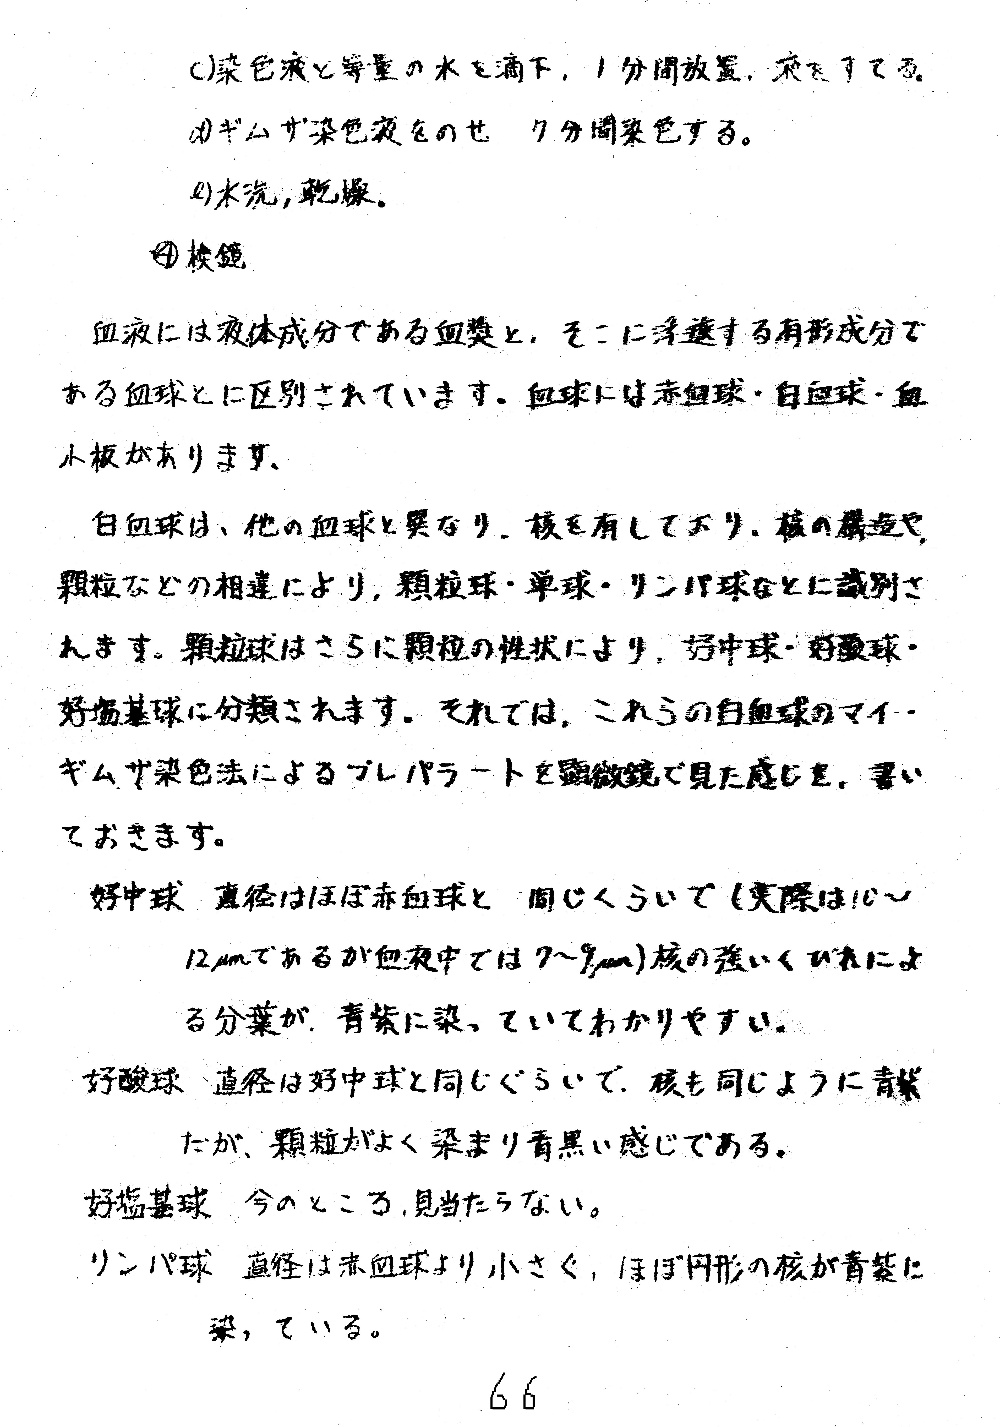 c)染色液と等量の水を滴下，1分間放置，液をすてる。
d)ギムザ染色液をのせ　7分間染色する。
e)水洗，乾燥。
④検鏡
血液には液体成分である血奬と，そこに浮遊する有形成分で
ある血球とに区別されています。血球には赤血球・白血球・血
小板があります。
白血球は、他の血球と異なり，核を有しており，核の構造や，
顆粒などの相違により，顆粒球・単球・リンパ球などに識別さ
れます。顆粒球はさらに顆粒の性状により，好中球・好酸球・
好塩基球に分類されます。それでは，これらの白血球のマイ－
ギムザ染色法によるプレパラートを顕微鏡で見た感じを，書い
ておきます。
好中球　直径はほぼ赤血球と　同じくらいで(実際は10～
12μmであるが血液中では7～9μm)核の強いくびれによ
る分葉が，青紫に染っていてわかりやすい。
好酸球　直径は好中球と同じぐらいで，核も同じように青紫
だが、顆粒がよく染まり青黒い感じである。
好塩基球　今のところ，見当たらない。
リンパ球　直径は赤血球より小さく，ほぼ円形の核が青紫に
染っている。
66